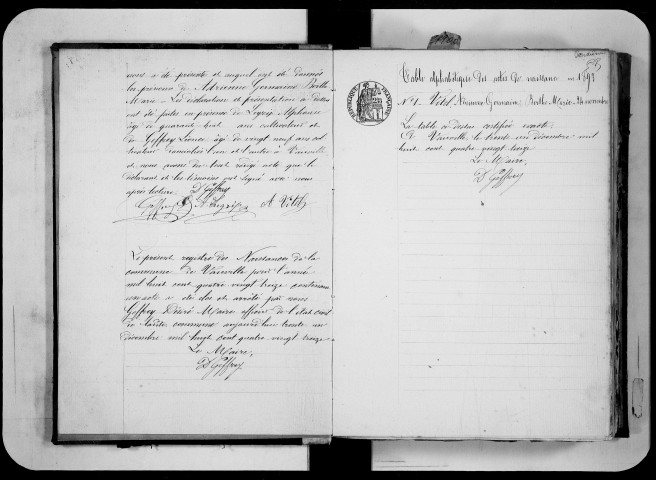 nous a été présenté et auquel ont été donnés
les prénoms de Adrienne Germaine Berthe
Marie. La déclaration et présentation ci dessus
ont été faites en présence de Alphonse
âgé de quarante huit ans cultivateur et
de Geffroy âgé de vingt neuf ans
domiciliés l'un et l'autre à Vauville
et nous avons du tout rédigé acte que le
déclarant et les témoins ont signé avec nous
après lecture. D Geffroy
Geffroy A Vitel
Le présent registre des Naissances de la
commune de Vauville pour l'année
mil huit cent quatre vingt treize contenant
un acte a été clos et arrêté par nous
Geffroy Désiré Maire officier de l'état civil
de ladite commune aujourd'hui trente un
décembre mil huit cent quatre vingt treize
Le Maire,
D Geffroy
Table alphabétique des actes de naissance en 1893
N° 1. Vitel Adrienne Germaine Berthe Marie. novembre
La table ci dessus certifiée exacte.
A Vauville le trente un décembre mil
huit cent quatre vingt treize.
Le Maire,
D Geffroy